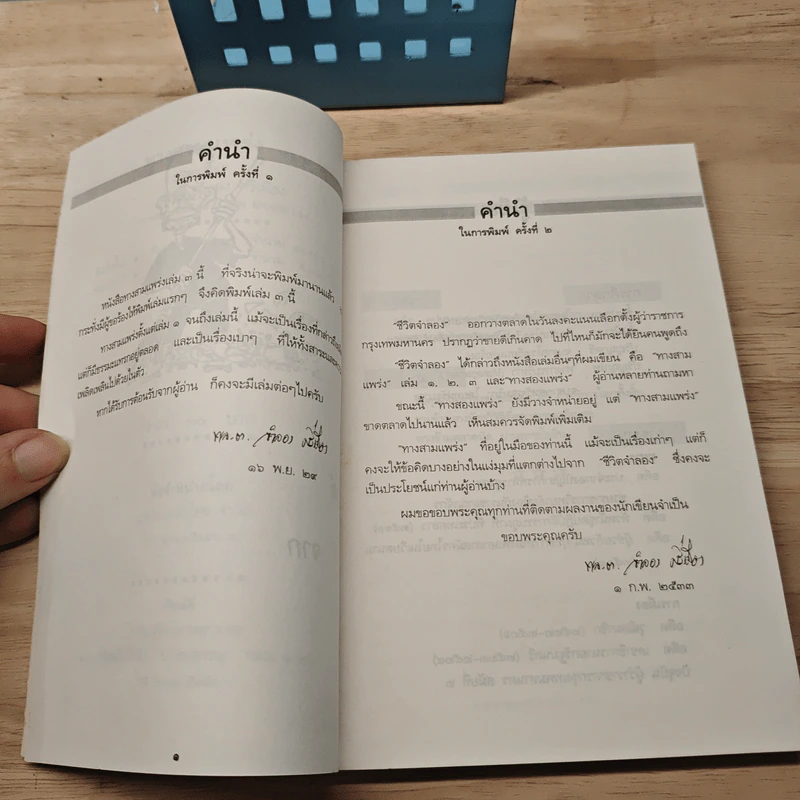 คำนำ
ในการพิมพ์ ครั้งที่ ๑
หนังสือทางสามแพร่งเล่ม ๓ นี้ ที่จริงน่าจะพิมพ์มานานแล้ว
กระทั่งมีผู้ขอร้องให้พิมพ์เล่มแรกๆ จึงคิดพิมพ์เล่ม ๓ นี้
ทางสามแพร่งตั้งแต่เล่ม ๑ จนถึงเล่มนี้ แม้จะเป็นเรื่องที่กล่าวถึง
แต่ก็มีธรรมะแทรกอยู่ตลอด และเป็นเรื่องเบาๆ ที่ให้ทั้งสาระและ
เพลิดเพลินไปด้วยในตัว
หากได้รับการต้อนรับจากผู้อ่าน ก็คงจะมีเล่มต่อๆไปครับ
พล.ต. จำลอง ศรีเมือง
๑๖ พ.ย. ๒๙
๑
คำนำ
ในการพิมพ์ ครั้งที่ ๒
"ชีวิตจำลอง" ออกวางตลาดในวันลงคะแนนเลือกตั้งผู้ว่าราชการ
กรุงเทพมหานคร ปรากฏว่าขายดีเกินคาด ไปที่ไหนก็มักจะได้ยินคนพูดถึง
"ชีวิตจำลอง" ได้กล่าวถึงหนังสือเล่มอื่นๆที่ผมเขียน คือ "ทางสาม
แพร่ง" เล่ม ๑, ๒, ๓ และ"ทางสองแพร่ง" ผู้อ่านหลายท่านถามหา
ขณะนี้ "ทางสองแพร่ง" ยังมีวางจำหน่ายอยู่ แต่ "ทางสามแพร่ง"
ขาดตลาดไปนานแล้ว เห็นสมควรจัดพิมพ์เพิ่มเติม
"ทางสามแพร่ง" ที่อยู่ในมือของท่านนี้ แม้จะเป็นเรื่องเก่าๆ แต่ก็
คงจะให้ข้อคิดบางอย่างในแง่มุมที่แตกต่างไปจาก "ชีวิตจำลอง" ซึ่งคงจะ
เป็นประโยชน์แก่ท่านผู้อ่านบ้าง
ผมขอขอบพระคุณทุกท่านที่ติดตามผลงานของนักเขียนจำเป็น
ขอบพระคุณครับ
พล.ต. จำลอง ศรีเมือง
๑ ก.พ. ๒๕๓๓